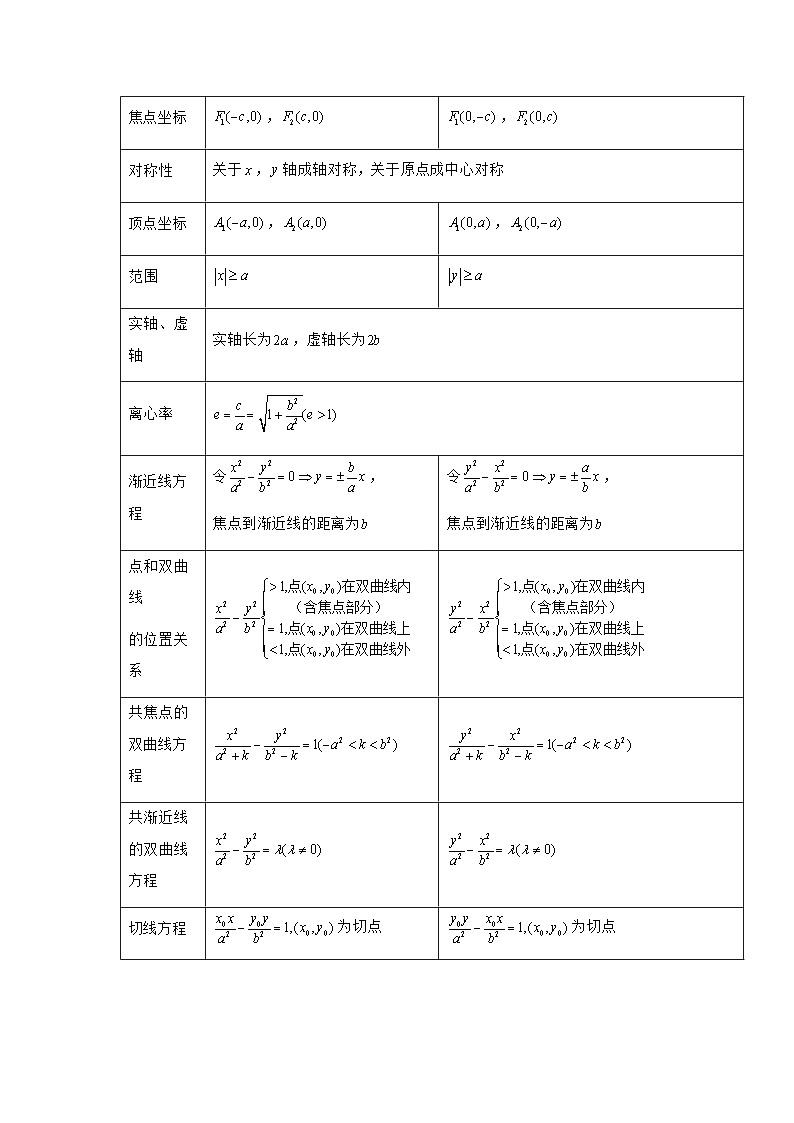 焦点坐标 F₁(−c,0)，F₂(c,0) F₁(0,−c)，F₂(0,c)
对称性 关于 x，y 轴成轴对称，关于原点成中心对称
顶点坐标 A₁(−a,0)，A₂(a,0) A₁(0,a)，A₂(0,−a)
范围 |x| ≥ a |y| ≥ a
实轴、虚
轴
实轴长为2a，虚轴长为2b
离心率 e = c/a = √(1 + b²/a²)(e > 1)
渐近线方
程
令 x²/a² − y²/b² = 0 ⇒ y = ± b/a x，
焦点到渐近线的距离为b
令 y²/a² − x²/b² = 0 ⇒ y = ± a/b x，
焦点到渐近线的距离为b
点和双曲
线
的位置关
系
x²/a² − y²/b² { > 1,点(x₀, y₀)在双曲线内
（含焦点部分）
= 1,点(x₀, y₀)在双曲线上
< 1,点(x₀, y₀)在双曲线外
y²/a² − x²/b² { > 1,点(x₀, y₀)在双曲线内
（含焦点部分）
= 1,点(x₀, y₀)在双曲线上
< 1,点(x₀, y₀)在双曲线外
共焦点的
双曲线方
程
x²/(a² + k) − y²/(b² − k) = 1(−a² < k < b²)
y²/(a² + k) − x²/(b² − k) = 1(−a² < k < b²)
共渐近线
的双曲线
方程
x²/a² − y²/b² = λ(λ ≠ 0)
y²/a² − x²/b² = λ(λ ≠ 0)
切线方程 x₀x/a² − y₀y/b² = 1,(x₀, y₀) 为切点 y₀y/a² − x₀x/b² = 1,(x₀, y₀) 为切点